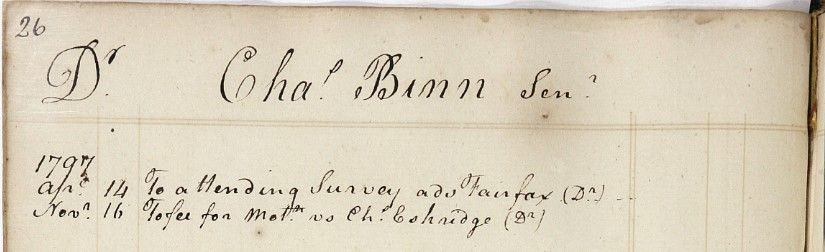 26
Dr. Chas. Binn Senr.
1797
Apr. 14 To attending Survey ads Fairfax (Dr)
Novr. 16 To fee for Motn vs Chs. Eskridge (Dr)